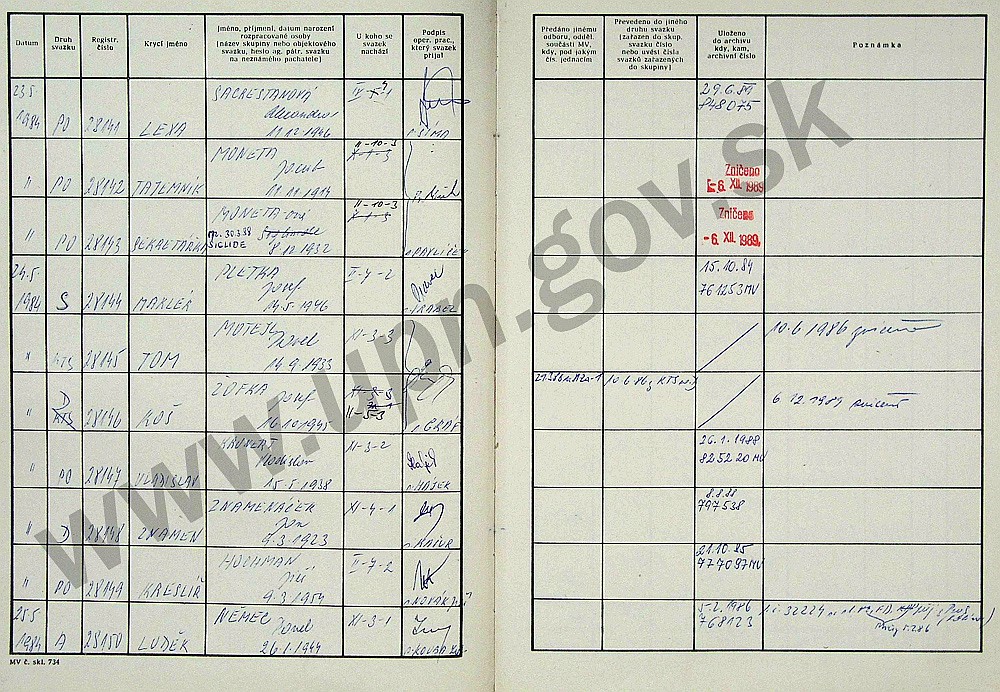 Datum
Druh svazku
Registr. číslo
Krycí jméno
Jméno, příjmení, datum narození
rozpracované osoby
(název skupiny nebo objektového
svazku, heslo ag. pátr. svazku
na neznámého pachatele)
U koho se
svazek
nachází
Podpis
oper. prac.,
který svazek
přijal
Předáno jinému
odboru, odděl.
součásti MV,
kdy, pod jakým
čís. jednacím
Převedeno do jiného
druhu svazku
(zařazen do skup.
svazku číslo
nebo uvést čísla
svazků zařazených
do skupiny)
Uloženo
do archivu
kdy, kam,
archivní číslo
Poznámka
23.5.
1984 PO 28141 LEXA
SACRESTANOVÁ
11.12.1946
ŠÍMA
29.6.89
848075
" PO 28142 TATEMNÍK
MONETA
Josef
11.11.1914
II-10-3
Zničeno
-6. XII. 1989
" PO 28143 SEKRETÁŘKA
MONETA-ová
30.3.88
SIGLIDE
8.12.1932
II-10-3
PAVLÍČEK
Zničeno
-6. XII. 1989
24.5.
1984 S 28144 MAKLÉR
PLETKA
Josef
14.5.1946
II-7-2
15.10.84
761253 MV
" KTS 28145 TOM
MOTESL
Pavel
14.9.1933
XI-3-3
10.6.1986 zničeno
" D
KTS 28146 KOŠ
ŽOFKA
Josef
16.10.1945
II-5-3
GRÁF
6.12.1989 zničeno
" PO 28147 VLADISLAV
Vladislav
15.5.1938
XI-3-2
HÁJEK
26.1.1988
825220 MV
" D 28148 ZNAMEN
ZNAMENÁČEK
Jan
9.3.1923
XI-4-1
8.8.88
797538
" PO 28149 KRESLÍŘ
HOCHMAN
Jiří
9.3.1954
II-7-2
NOVÁK
21.10.85
777097 MV
25.5.
1984 A 28150 LUDĚK
NĚMEC
Pavel
26.1.1944
XI-3-1
5.2.1986
768123
MV č. skl. 734
www.upn.gov.sk